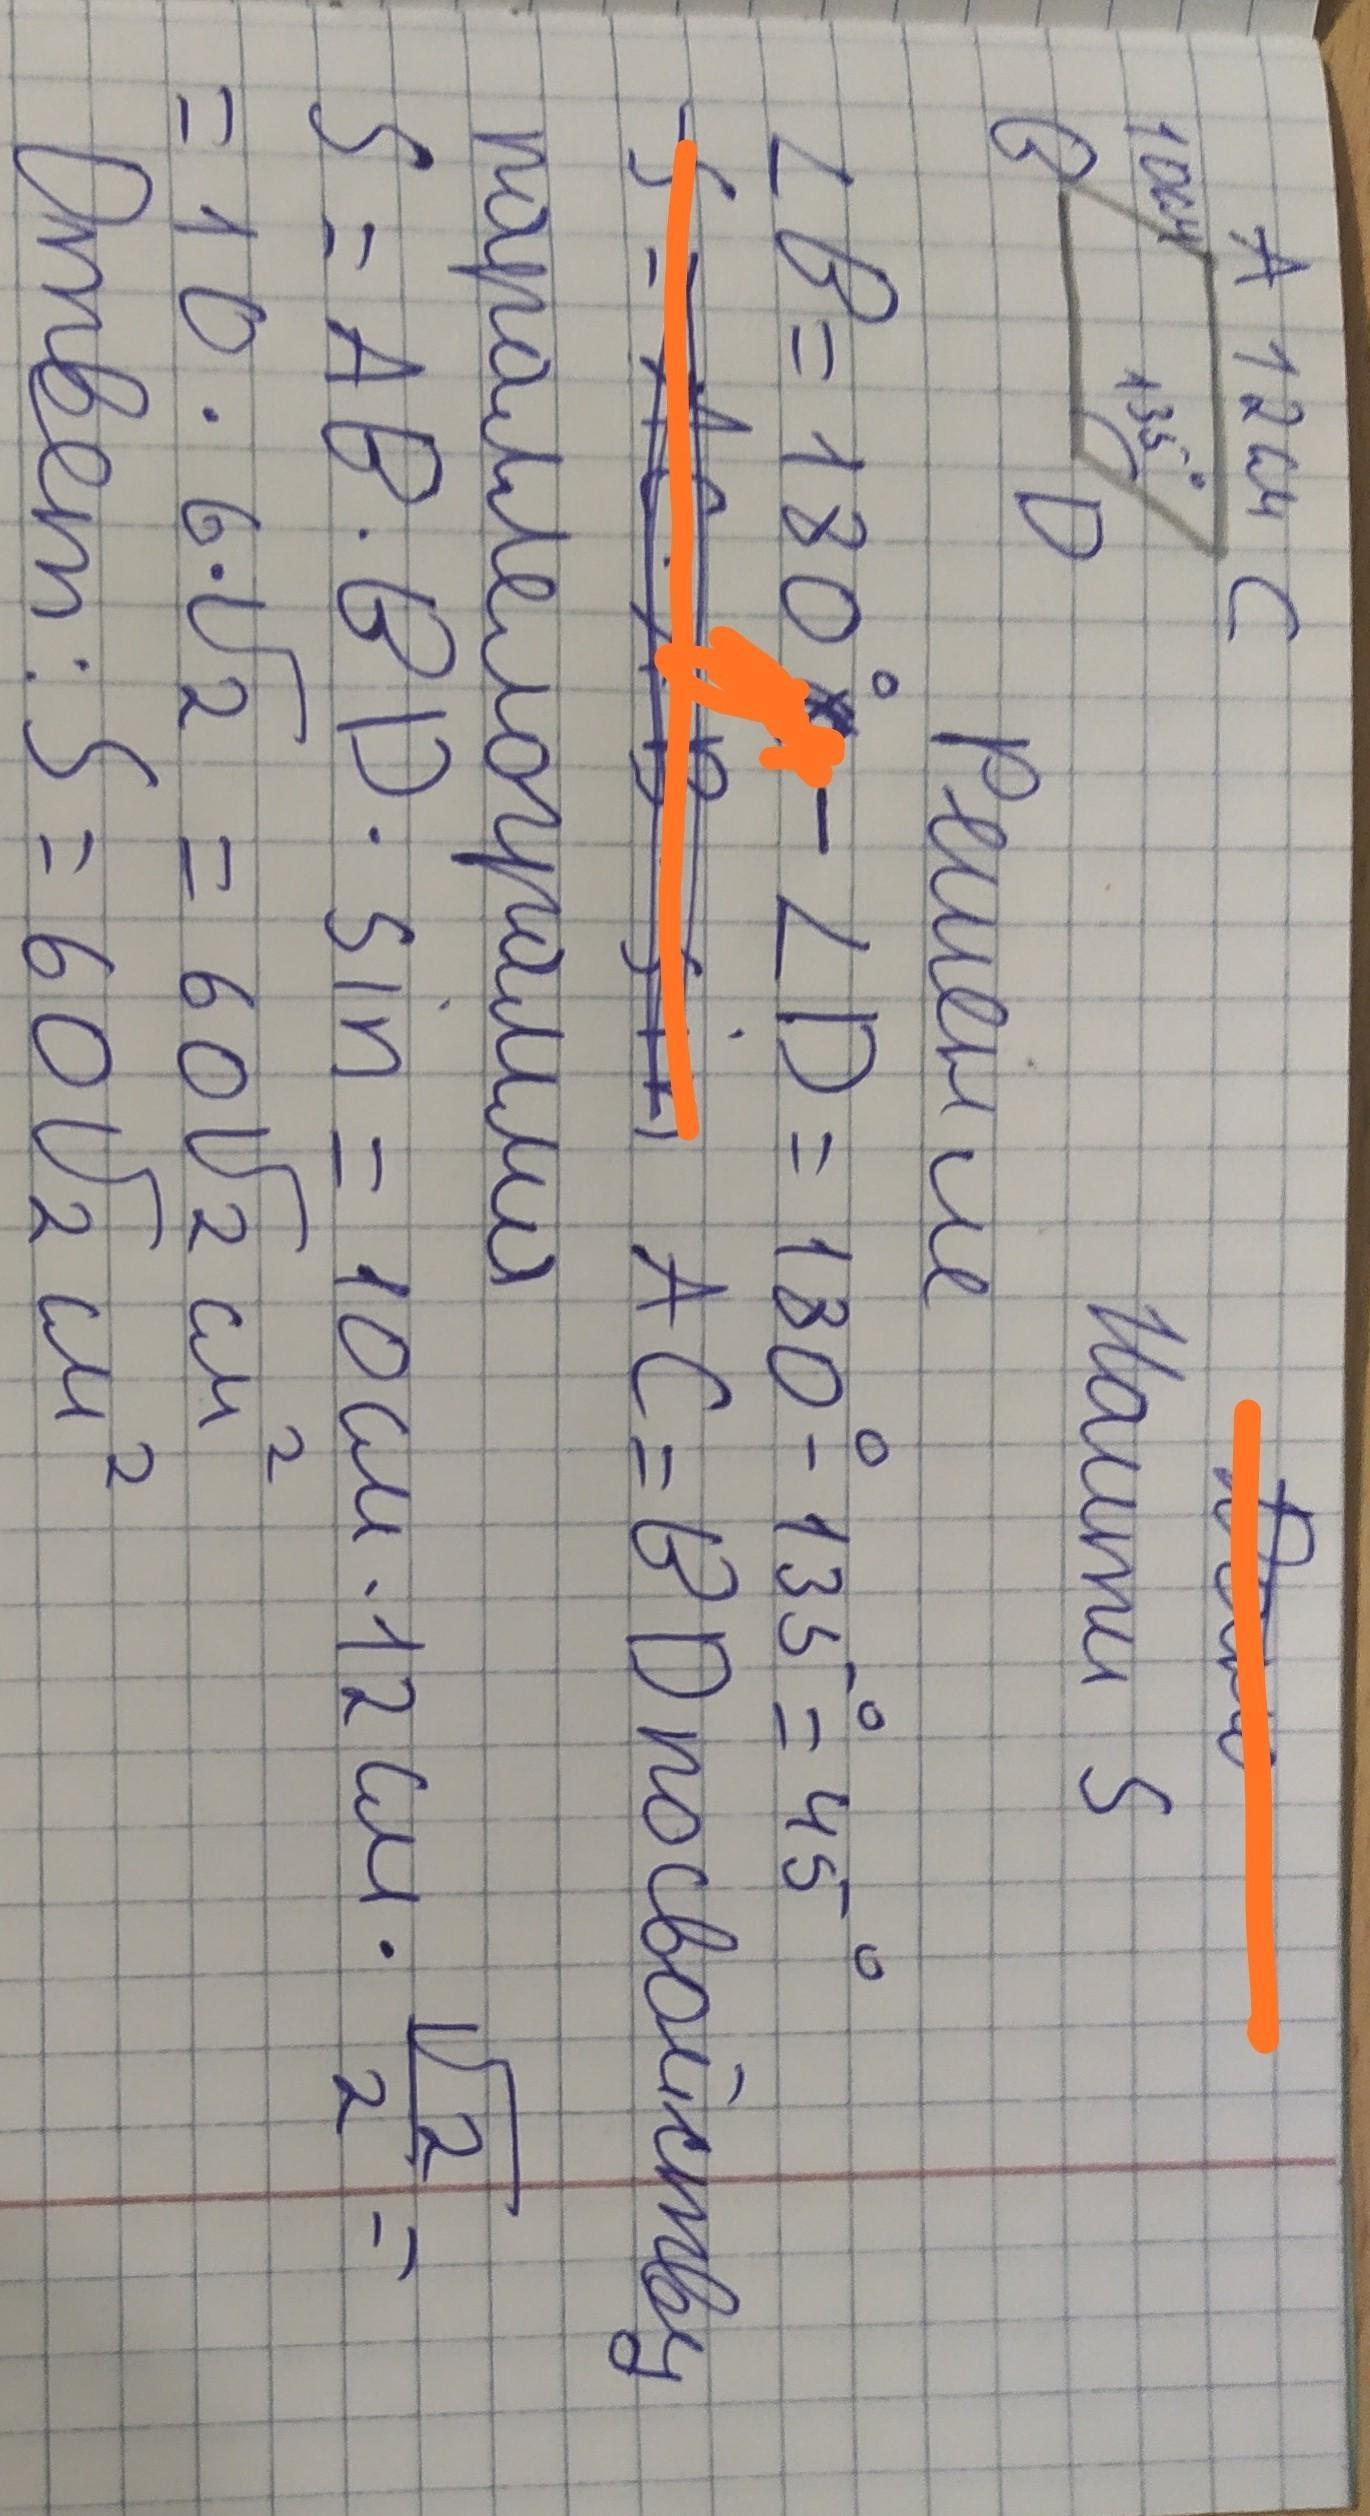 A 12см C
10см
135°
B D
Найти S
Решение
∠B = 180° - ∠D = 180° - 135° = 45°
AC = BD по свойству
параллелограмма
S = AB · BD · sin = 10см · 12см · √2/2 =
= 10 · 6 · √2 = 60√2 см²
Ответ: S = 60√2 см²